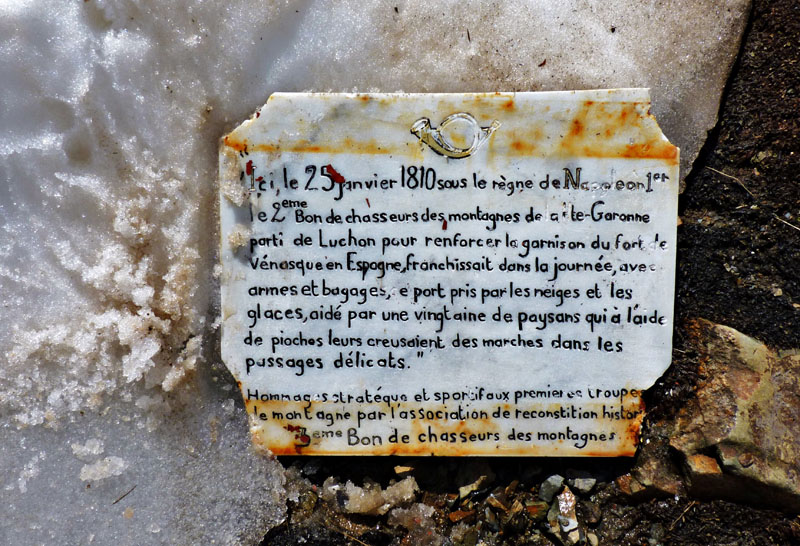 "Ici, le 25 janvier 1810 sous le règne de Napoleon 1er
le 2eme Bon de chasseurs des montagnes de a te-Garonne
parti de Luchon pour renforcer la garnison du fort de
Vénasque en Espagne, franchissait dans la journée, avec
armes et bagages, e port pris par les neiges et les
glaces, aidé par une vingtaine de paysans qui à l'aide
de pioches leurs creusaient des marches dans les
passages délicats."
Hommage stratéque et sportif aux premieres troupes
de montagne par l'association de reconstition histor
3eme Bon de chasseurs des montagnes